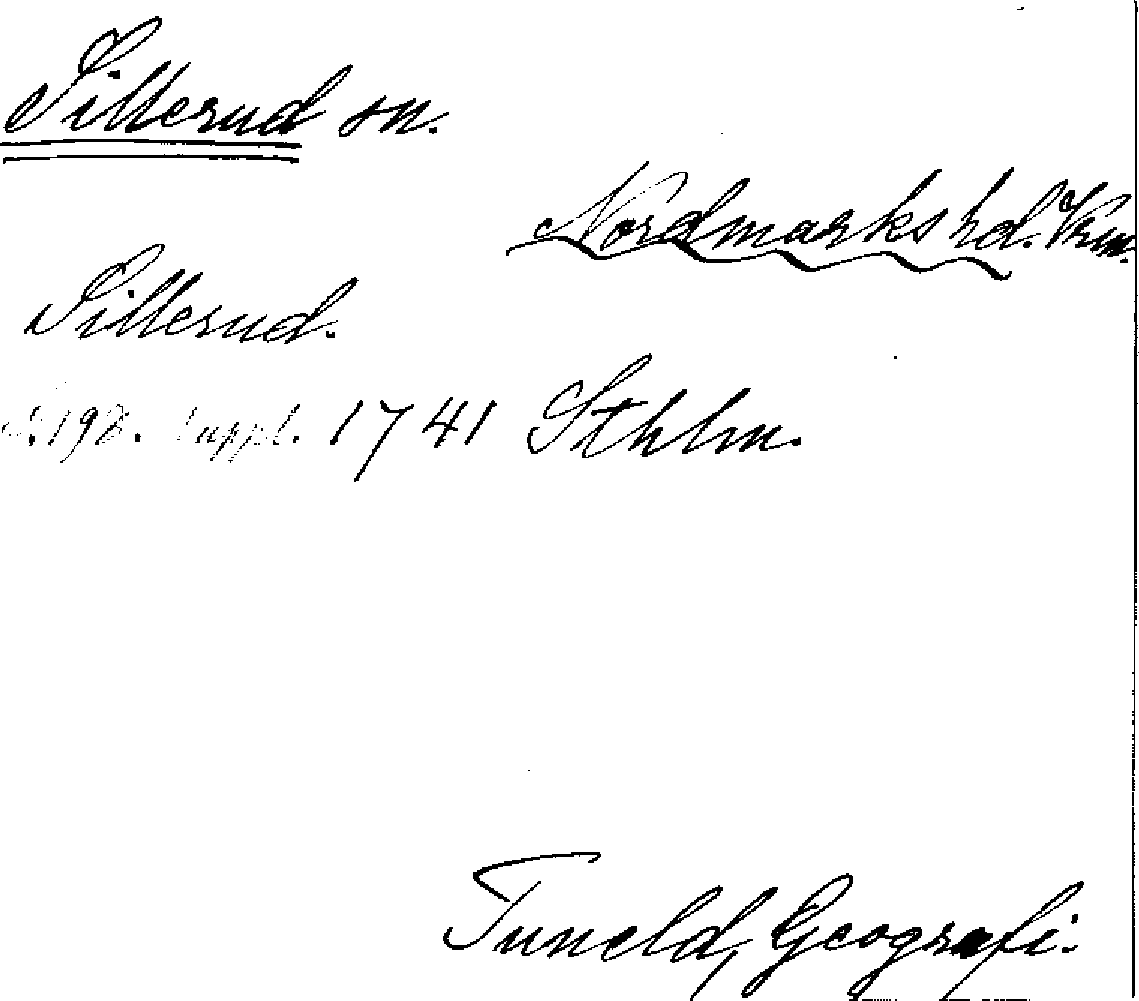 Sillerud sn.
Nordmarks hd. Vrm.
Sillerud.
S. 198. Suppl. 1741 Sthlm.
Tuneld, Geografi.